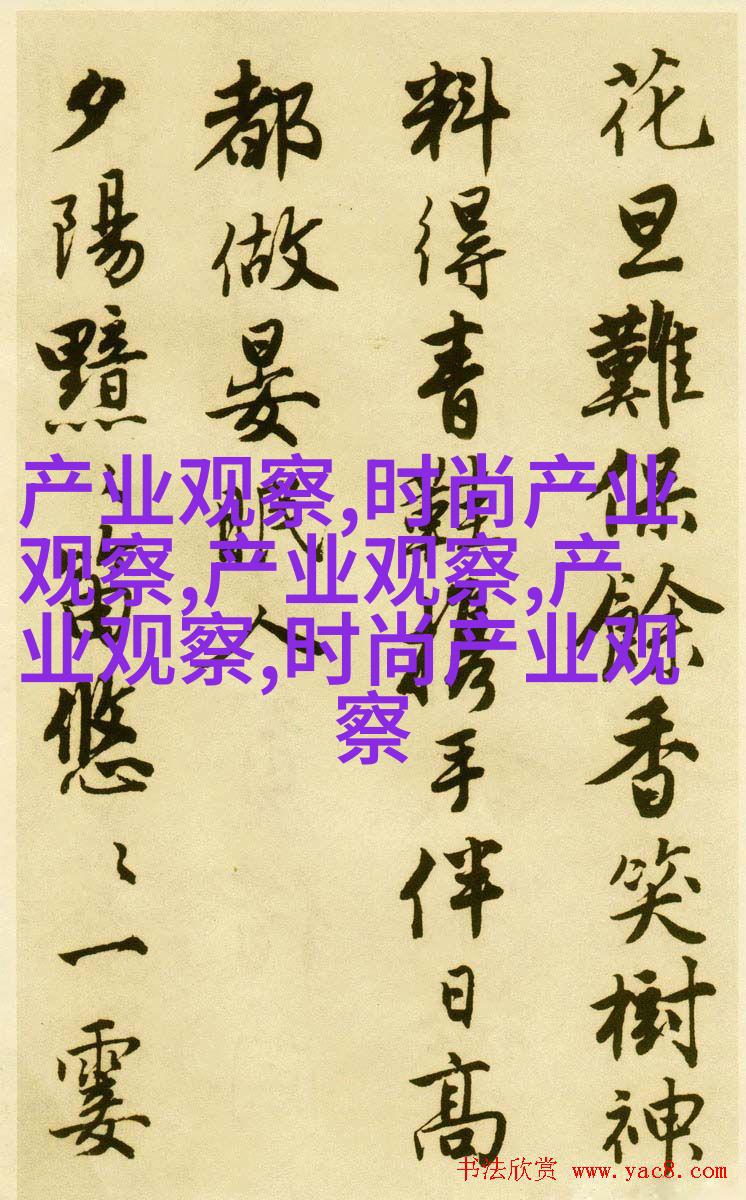 花旦難保餘香笑樹神
料得青鞋攜手伴日高
都做晏眠人
夕陽黯〻笛悠〻一霎
产业观察,时尚产业
观察,产业观察,产
业观察,时尚产业观
察
书法欣赏 www.yac8.com